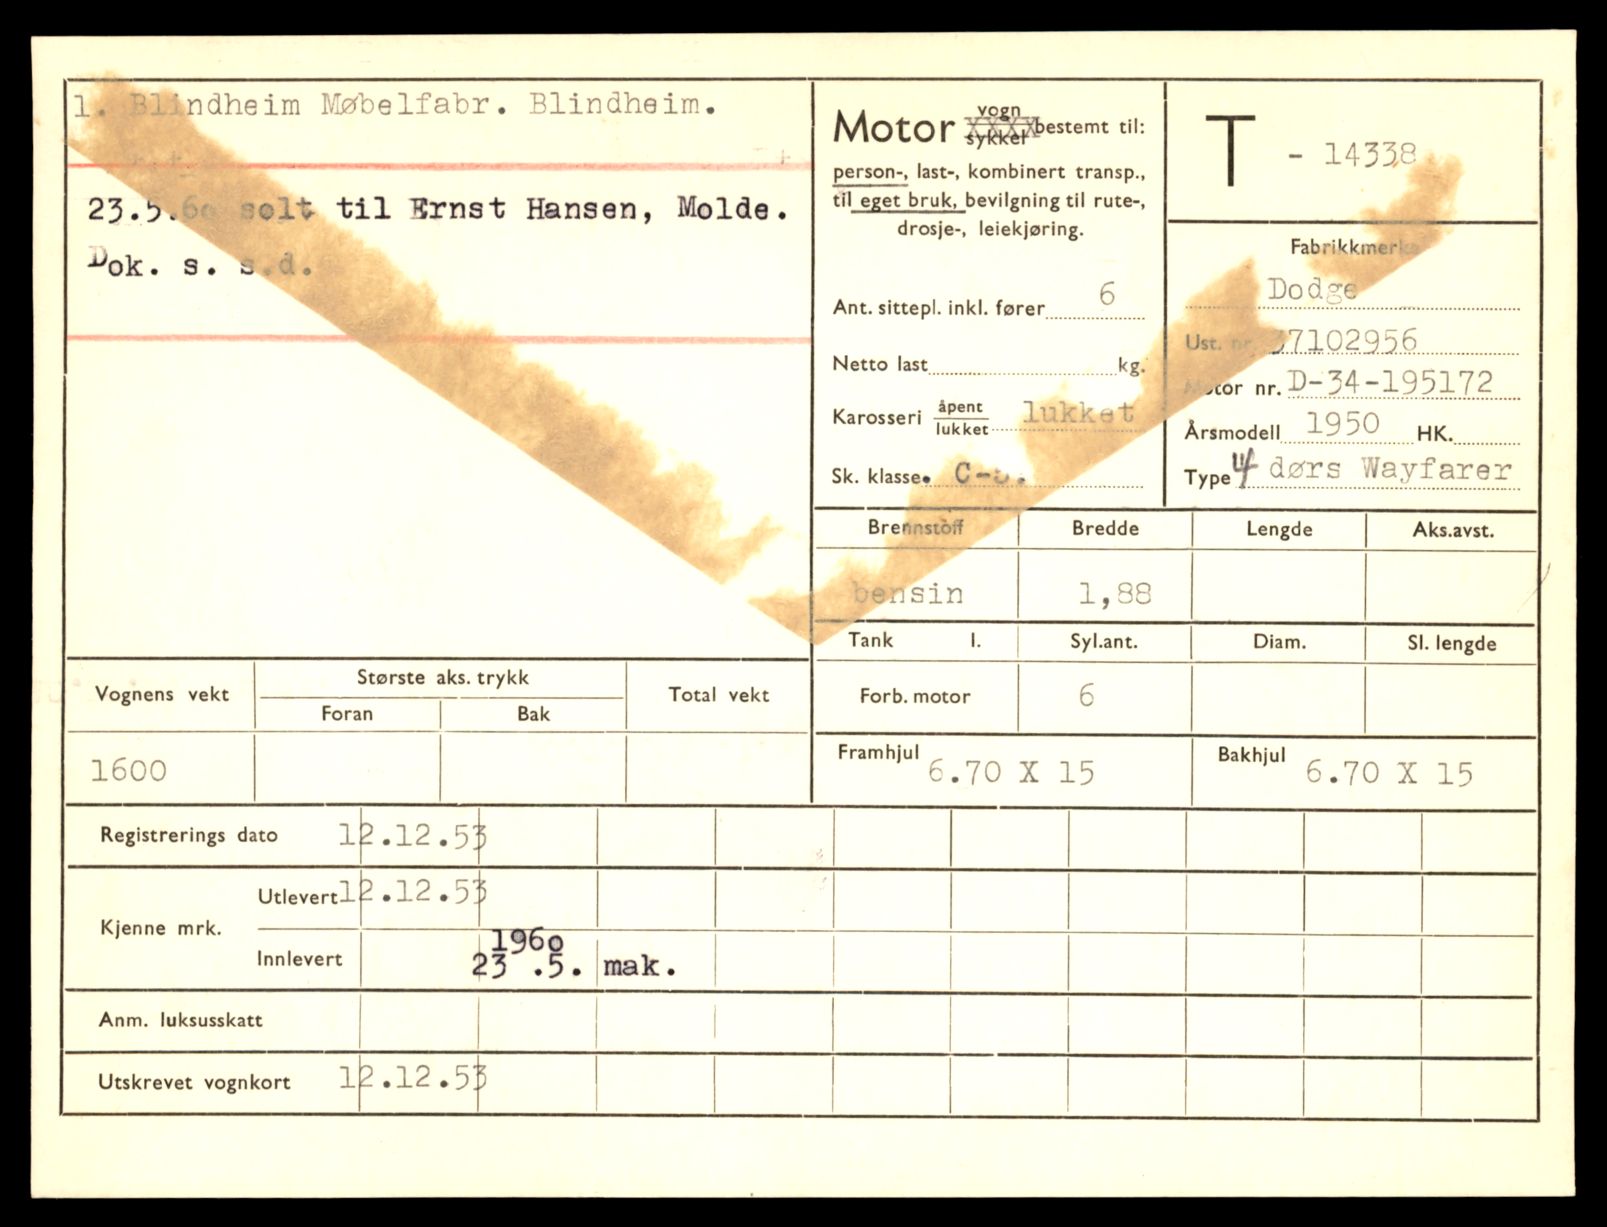 1. Blindheim Møbelfabr. Blindheim.
23.5.60 solt til Ernst Hansen, Molde.
Dok. s. s.d.
Motor vogn sykkel bestemt til:
person-, last-, kombinert transp.,
til eget bruk, bevilgning til rute-,
drosje-, leiekjøring.
Ant. sittepl. inkl. fører 6
Netto last kg.
Karosseri åpent lukket lukket
Sk. klasse.
T - 14338
Fabrikkmerke
Dodge
Ust. nr. 37102956
Motor nr. D-34-195172
Årsmodell 1950 HK.
Type 4 dørs Wayfarer
Brennstoff Bredde Lengde Aks.avst.
bensin 1,88
Tank l. Syl.ant. Diam. Sl. lengde
Forb. motor 6
Vognens vekt Største aks. trykk Total vekt
Foran Bak
1600
Framhjul 6.70 X 15 Bakhjul 6.70 X 15
Registrerings dato 12.12.53
Kjenne mrk.
Utlevert 12.12.53
1960
Innlevert 23 .5. mak.
Anm. luksusskatt
Utskrevet vognkort 12.12.53